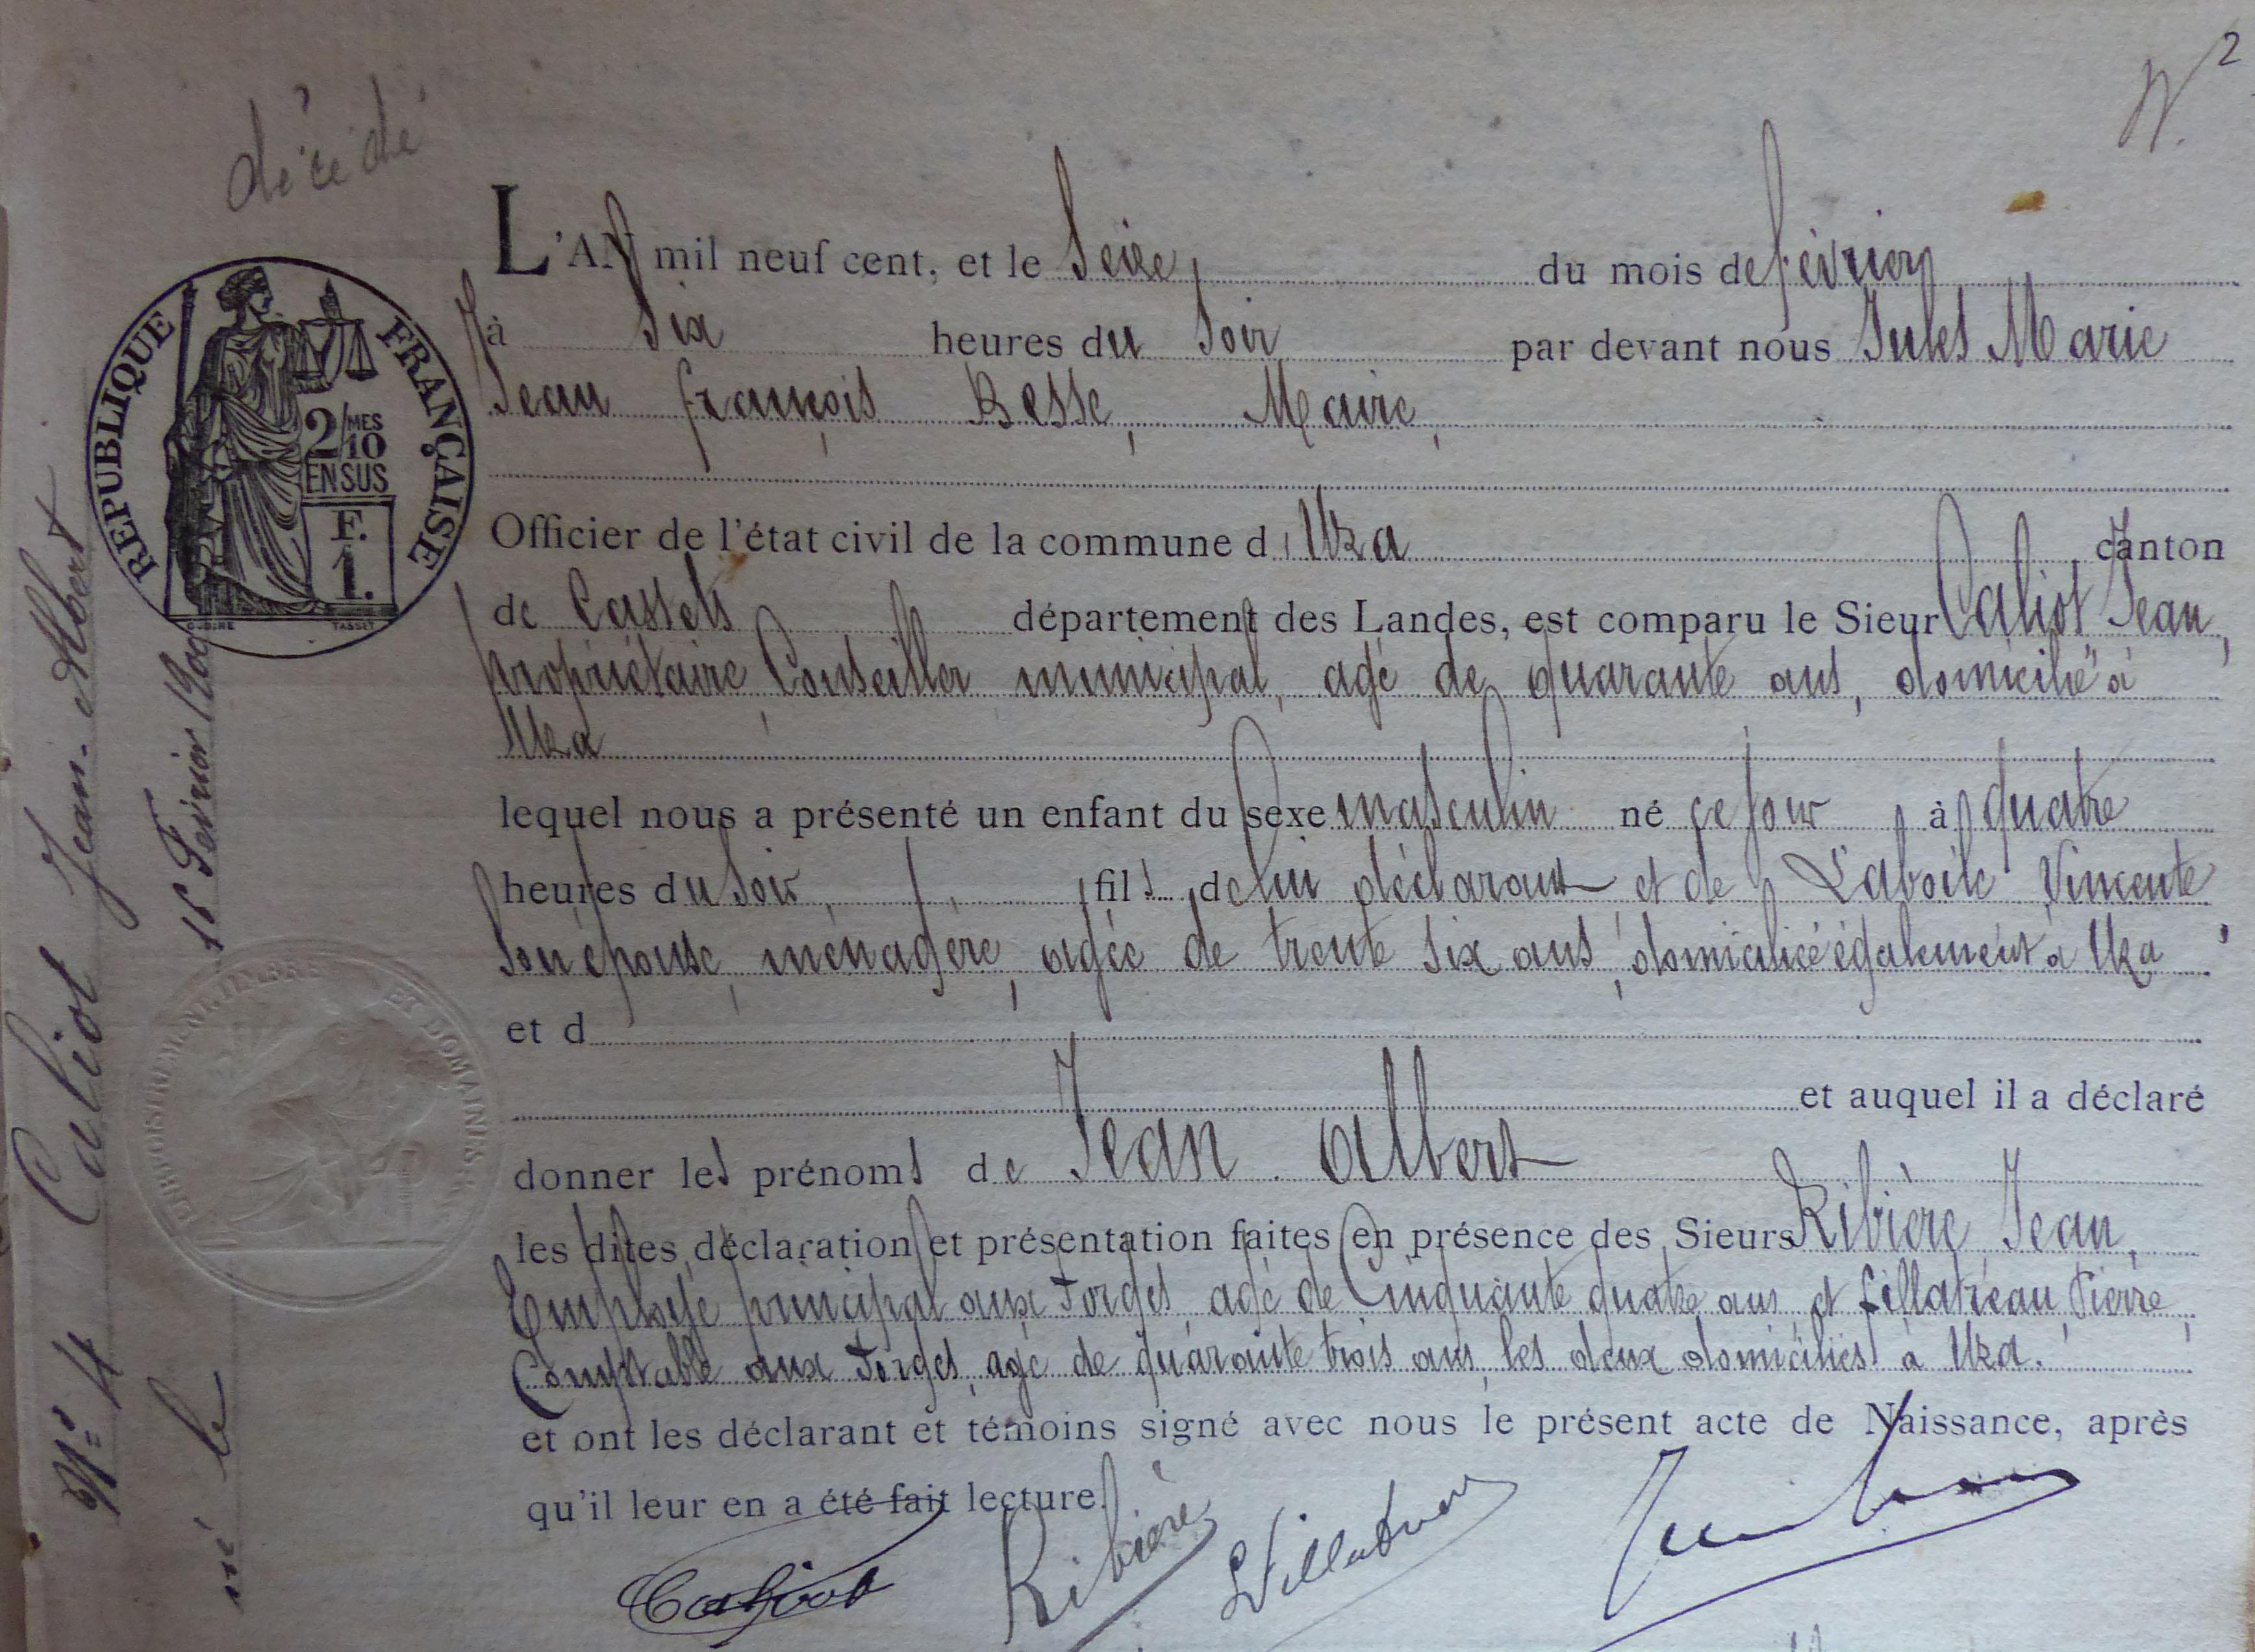 décédé
N° 2
L'AN mil neuf cent, et le Seize du mois de février
à Six heures du Soir par devant nous Jules Marie
Jean françois Besse, Maire,
Officier de l'état civil de la commune d'Uza canton
de Castets département des Landes, est comparu le Sieur Caliot Jean,
propriétaire, Conseiller municipal, agé de quarante ans, domicilié à
Uza
lequel nous a présenté un enfant du sexe masculin né ce jour à quatre
heures du Soir, fils de lui déclarant et de Laboile Vincente
Son épouse, ménagère, agée de trente Six ans, domiciliée également à Uza
et d
et auquel il a déclaré
donner les prénoms de Jean Albert
les dites déclaration et présentation faites en présence des Sieurs Ribière Jean,
Employé principal aux Forges, agé de Cinquante quatre ans, et fillatreau Pierre,
Comptable aux Forges, agé de quarante trois ans, les deux domiciliés à Uza.
et ont les déclarant et témoins signé avec nous le présent acte de Naissance, après
qu'il leur en a été fait lecture.
Caliot
Ribière
Fillatreau
REPUBLIQUE FRANÇAISE
2/MES
10
EN SUS
F.
1.
OUDINÉ TASSET
ENREGISTREMENT, TIMBRE ET DOMAINES
N° 4 Caliot Jean-Albert
né le 16 Février 1900